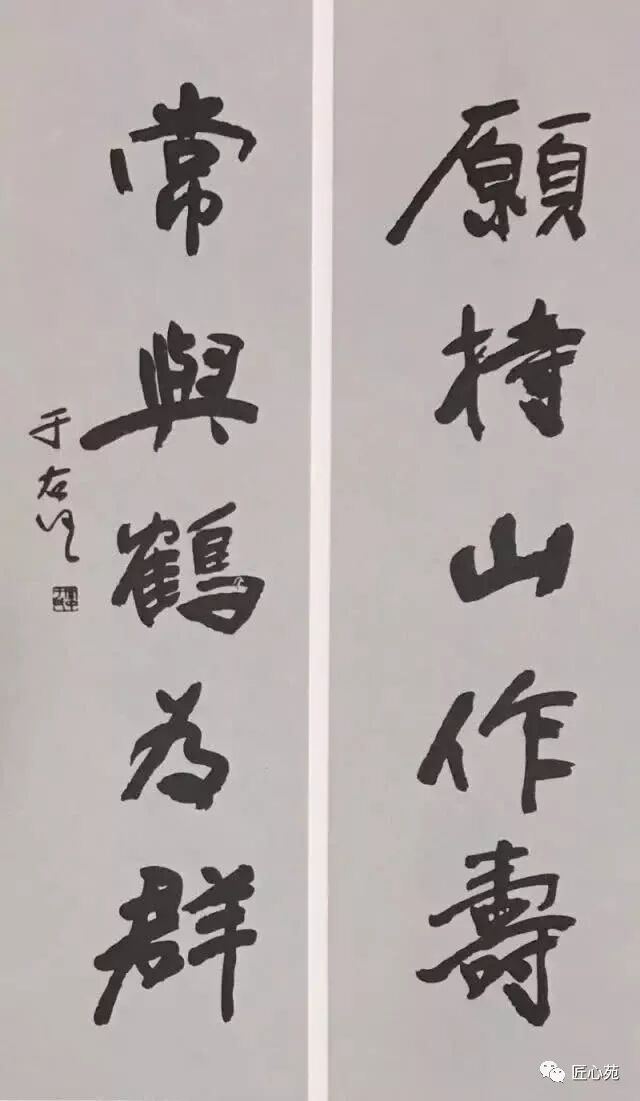 願持山作壽
常與鶴為群
于右任
匠心苑